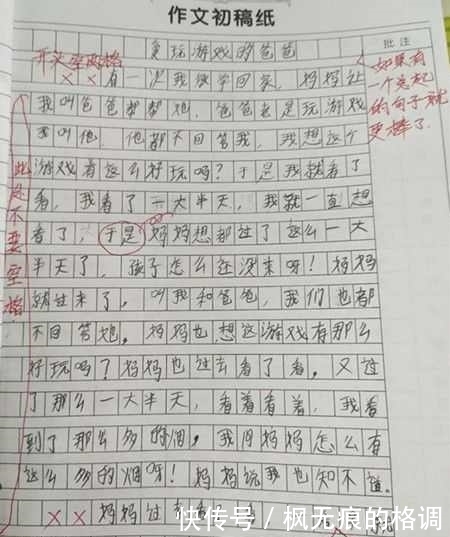 作文初稿纸
爱玩游戏的爸爸
批注
开头空两格
××有一次我放学回家，妈妈让
如果有
一个总起
的句子就
更棒了.
我叫爸爸帮帮她，爸爸老是玩游戏
要叫他，他都不回答我，我想这个
游戏有这么好玩吗？于是我就看了
看，我看了一大半天，我就一直想
看了，于是妈妈想都过了这么一大
半天了，孩子怎么还没来呀！妈妈
就过来了，叫我和爸爸，我们也都
不回答她。妈妈也想这游戏有那么
好玩吗？妈妈也过去看了看。又过
了那么一大半天，看着看着，我看
到了那么多的烟，我问妈妈怎么有
这么多的烟呀！妈妈说我也知不道。
××妈妈过去看
此处不要空格
快传号／枫无痕的格调